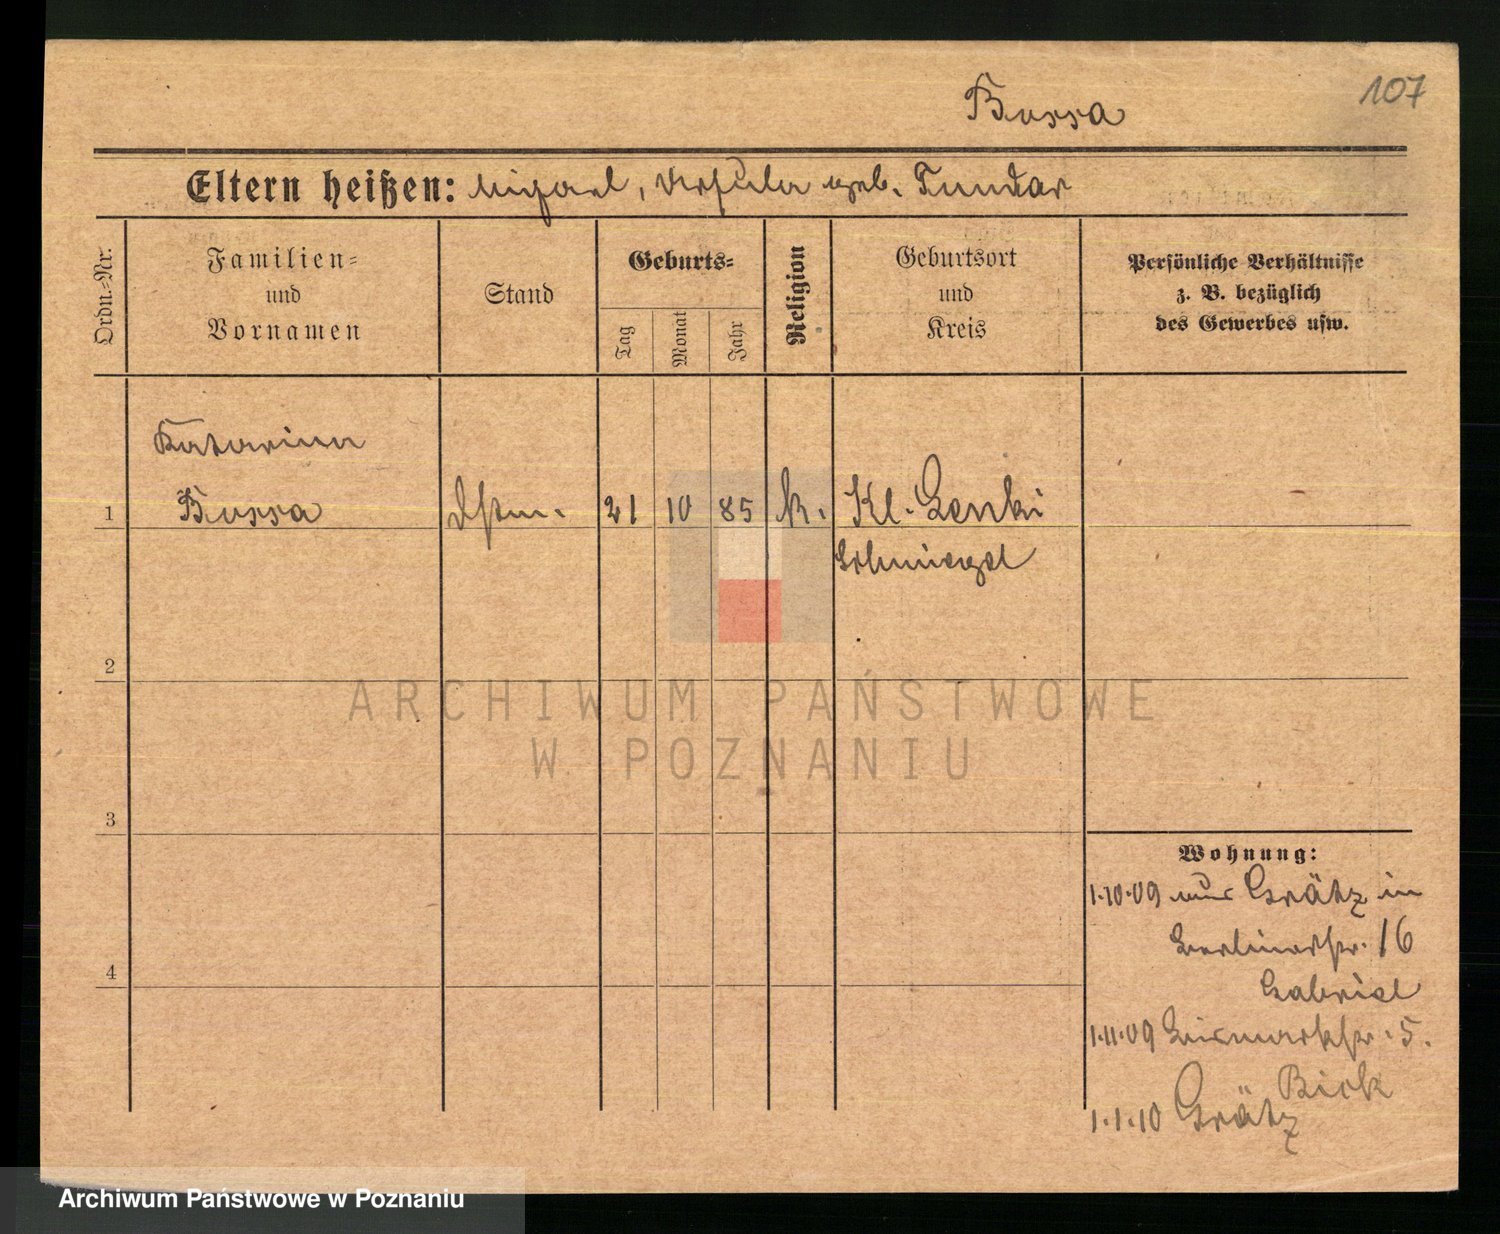 107
Bussa
Eltern heißen: Michael, Ursula geb. Tundar
Ordn.-Nr.
Familien=
und
Vornamen
Stand
Geburts=
Tag
Monat
Jahr
Religion
Geburtsort
und
Kreis
Persönliche Verhältnisse
z. B. bezüglich
des Gewerbes usw.
Katarina
1 Bussa Dstm. 21 10 85 k. Kl. Lenki
Schmiegel
2
3
4
ARCHIWUM PAŃSTWOWE
W POZNANIU
Wohnung:
1.10.09 aus Grätz in
Berlinerstr. 16
Gabriel
1.11.09 Bismarkstr. 5.
Biok
1.1.10 Grätz
Archiwum Państwowe w Poznaniu